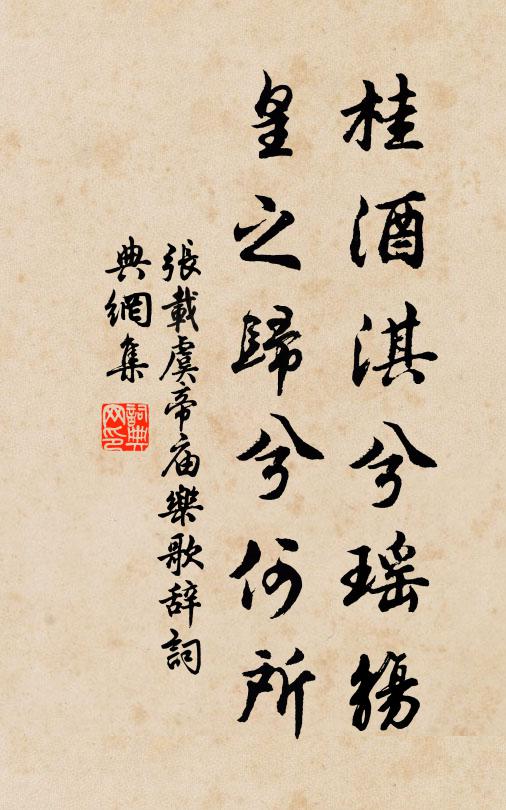 桂酒淇兮瑶觴
皇之歸兮何所
張載虞帝庙樂歌辞詞
典網集
詞典网印